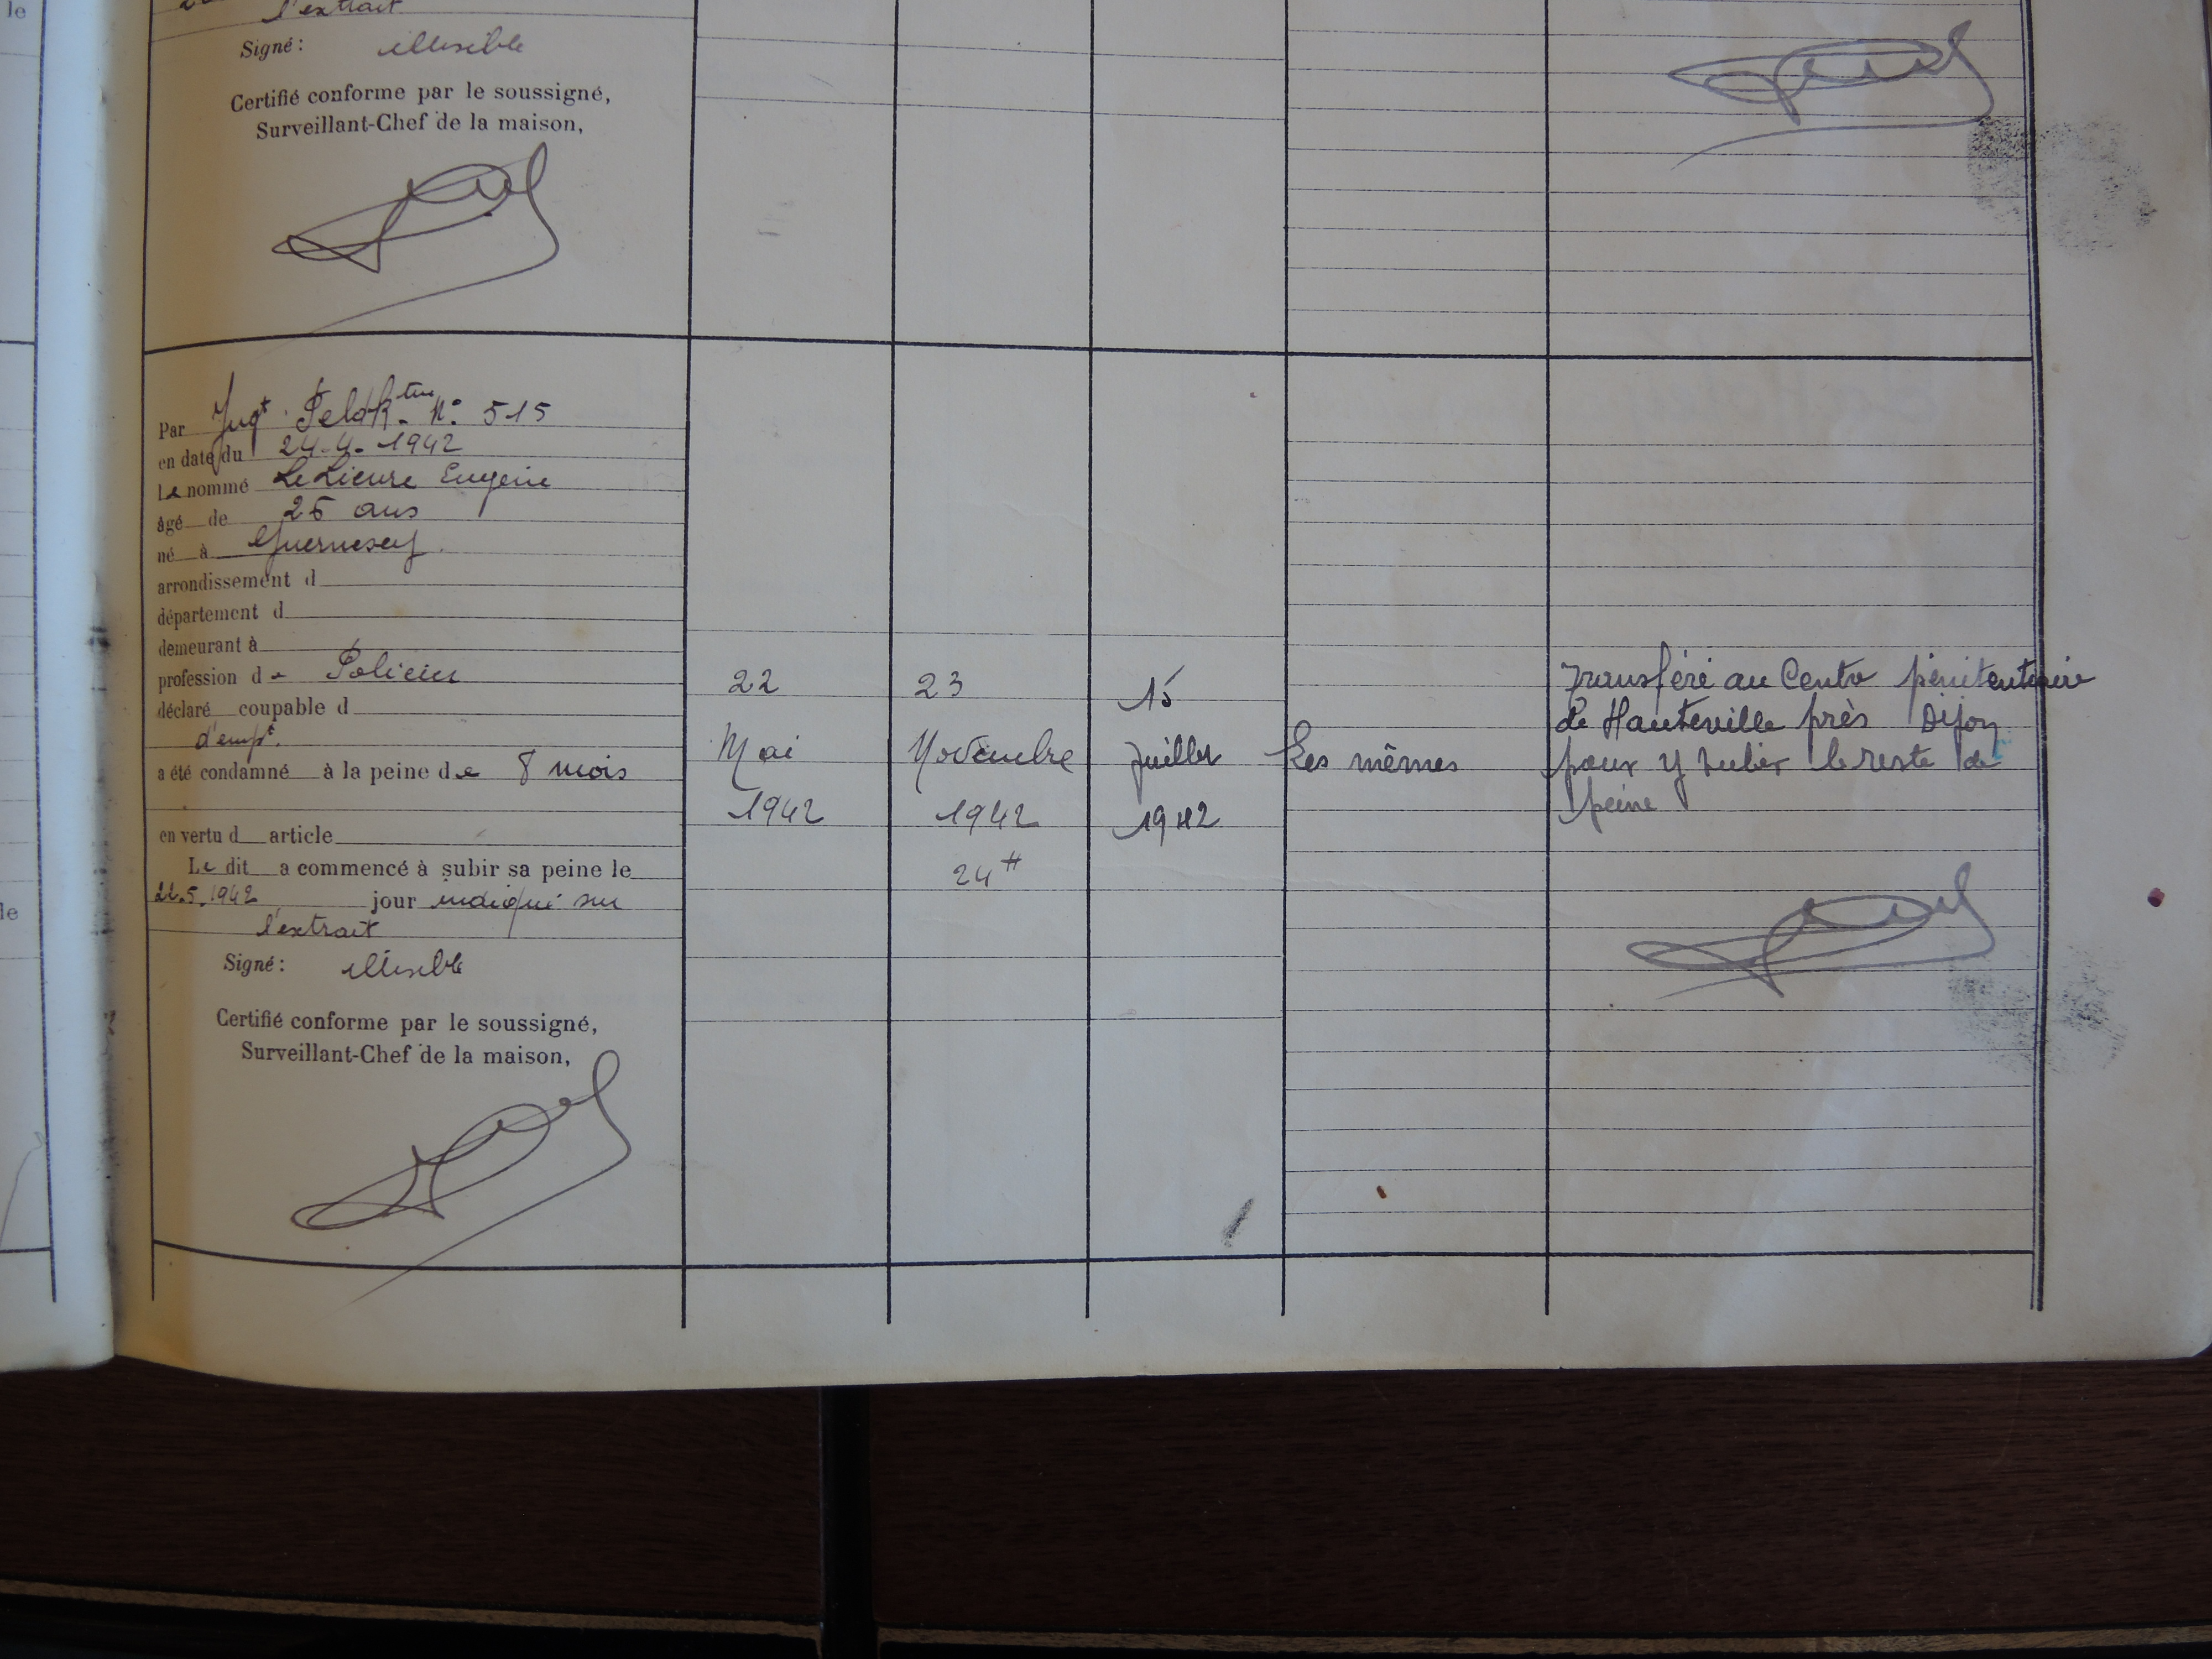 le
l'extrait
Signé: illisible
Certifié conforme par le soussigné,
Surveillant-Chef de la maison,
Par Jugt Feldk.tur N° 515
en date du 24-4-1942
Le nommé Le Lievre Eugene
âgé de 25 ans
né à Guernesey.
arrondissement d
département d
demeurant à
profession de Policier
déclaré coupable d
d'empt.
a été condamné à la peine de 8 mois
en vertu d article
Le dit a commencé à subir sa peine le
22.5.1942 jour indiqué sur
l'extrait
Signé: illisible
Certifié conforme par le soussigné,
Surveillant-Chef de la maison,
22
Mai
1942
23
Novembre
1942
24 H
15
Juillet
1942
Les mêmes
Transféré au Centre pénitentiaire
de Hauteville près Dijon
pour y subir le reste de
peine
le